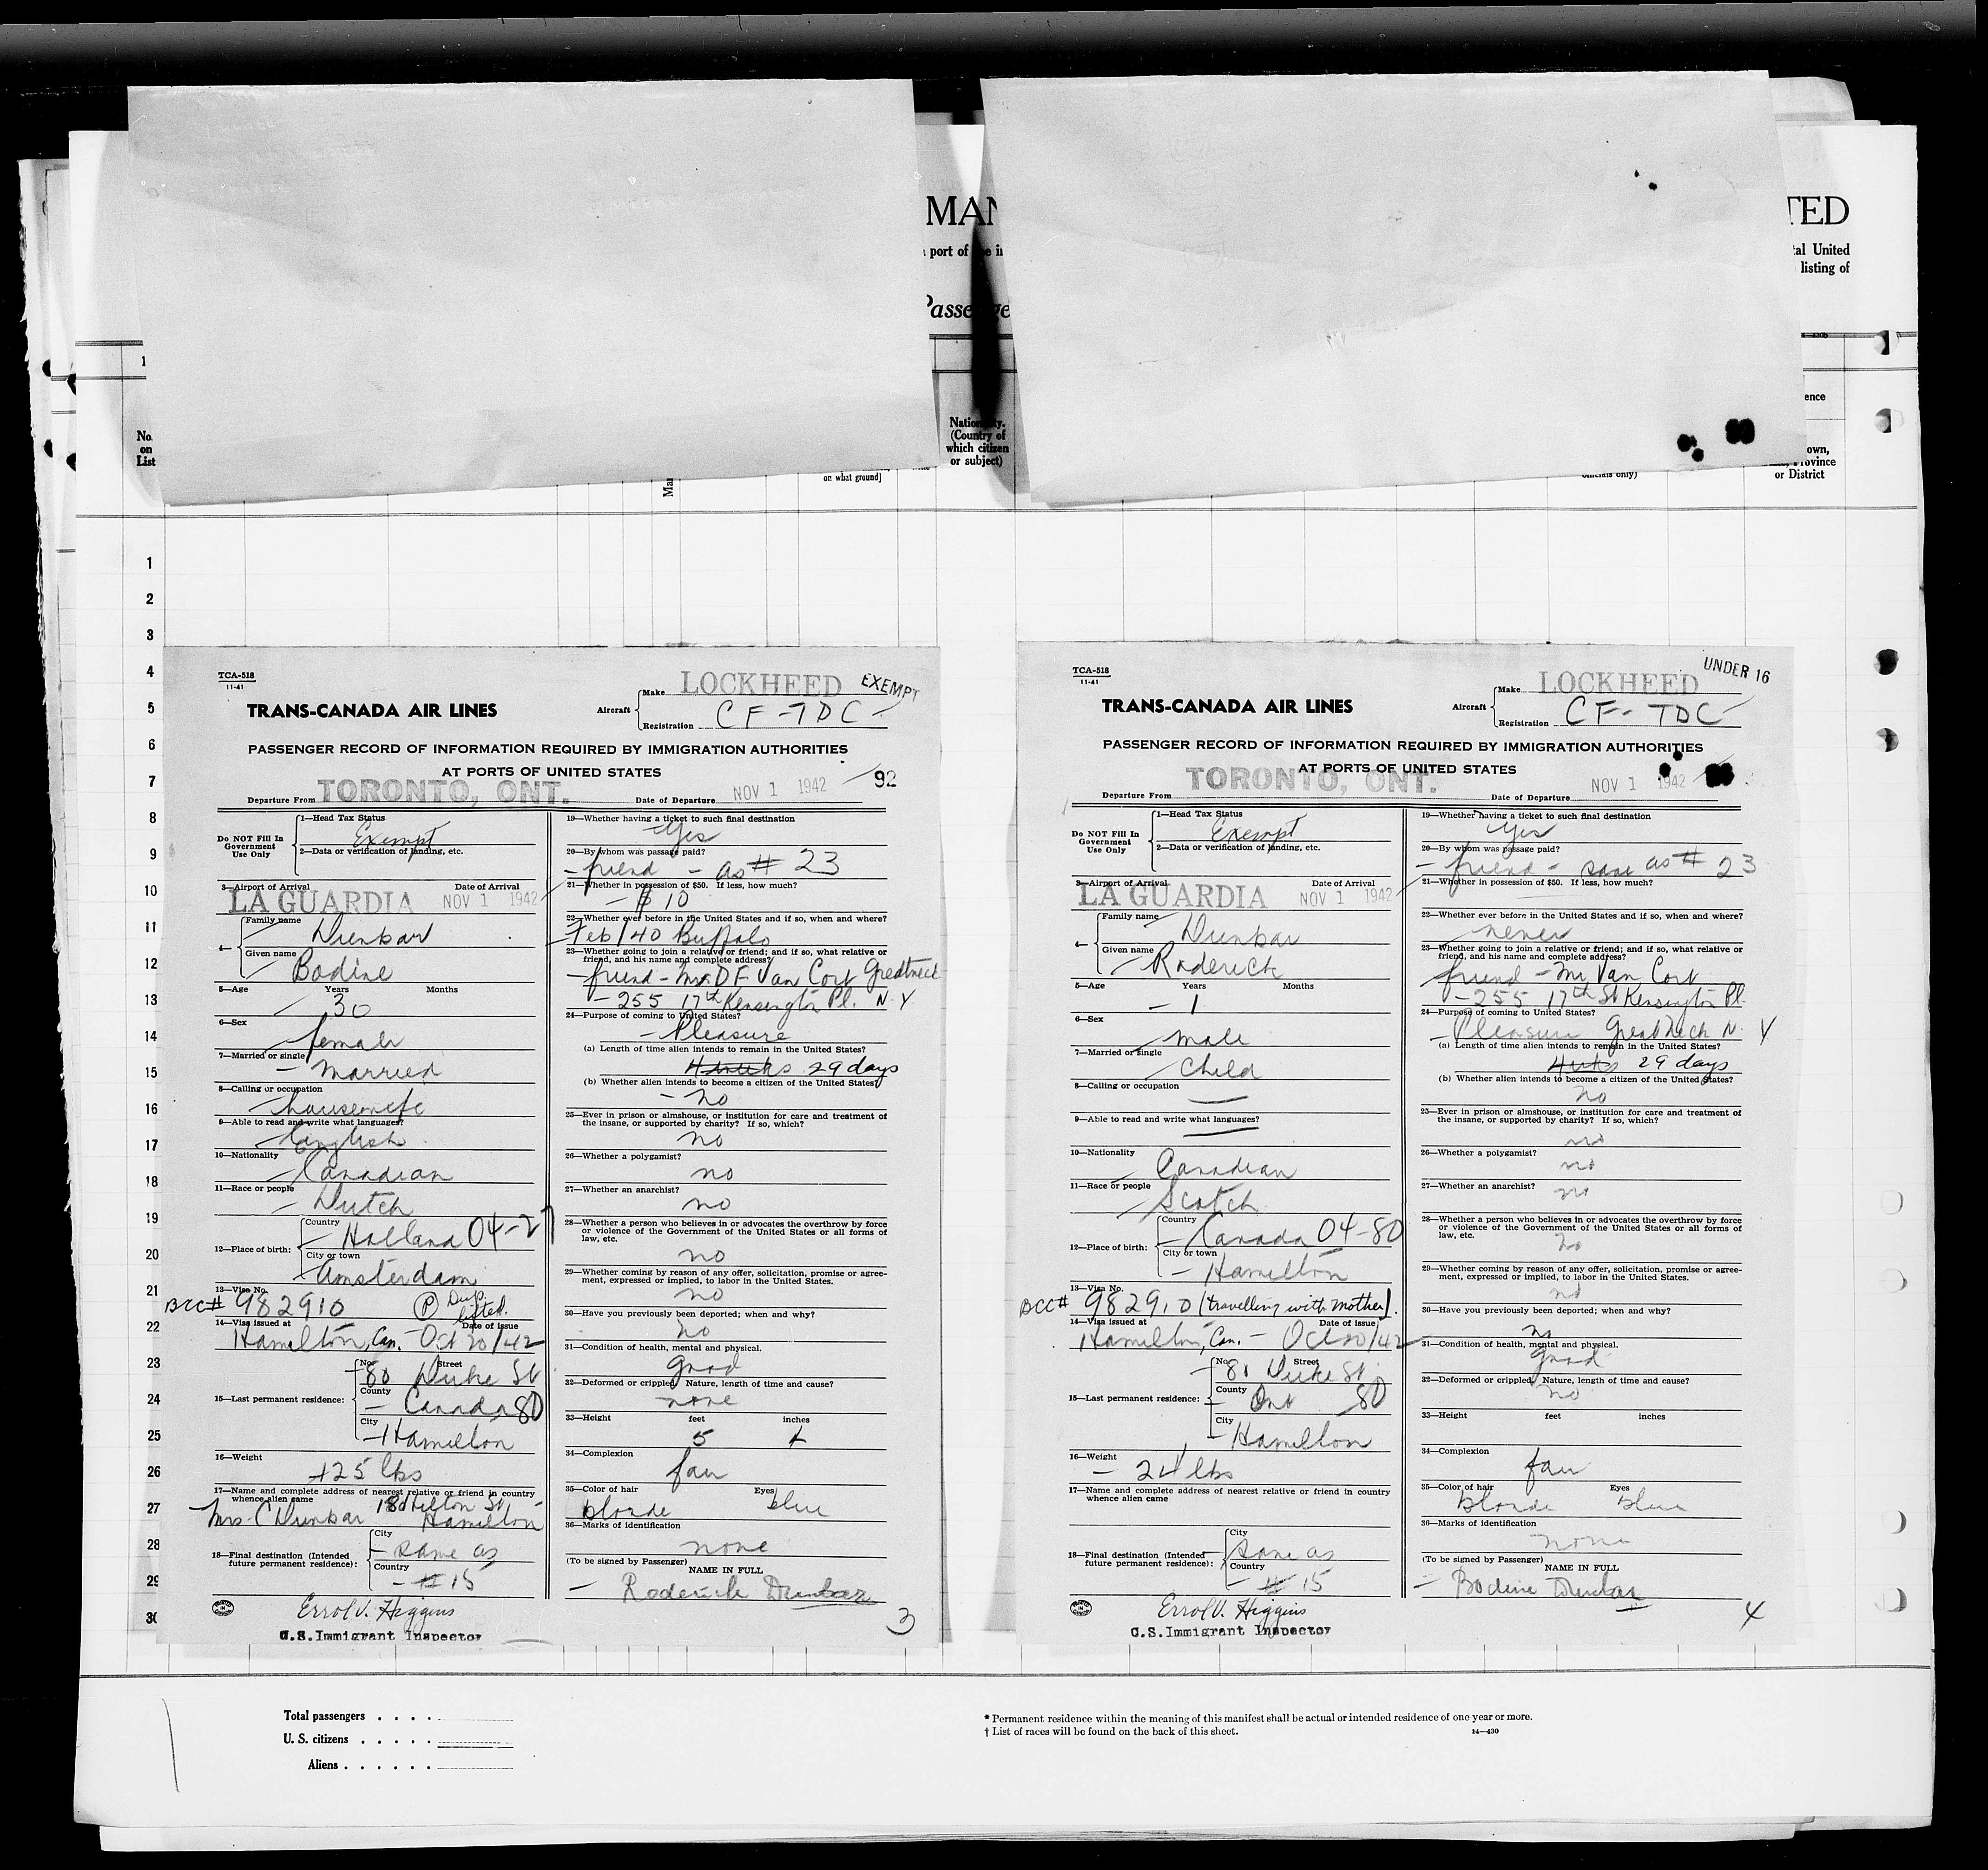 MAN
TED
port of the in
tal United
listing of
Passenge
1
ence
No.
on
List
Nationality.
(Country of
which citizen
or subject)
own,
Province
or District
on what ground]
officials only)
1
2
3
4
5
6
7
8
9
10
11
12
13
14
15
16
17
18
19
20
21
22
23
24
25
26
27
28
29
30
TCA-518
11-41
LOCKHEED
EXEMPT
TRANS-CANADA AIR LINES
Aircraft
Make
Registration CF-TDC
PASSENGER RECORD OF INFORMATION REQUIRED BY IMMIGRATION AUTHORITIES
AT PORTS OF UNITED STATES
92
Departure From TORONTO, ONT.
Date of Departure NOV 1 1942
Do NOT Fill In
Government
Use Only
1—Head Tax Status
Exempt
2—Data or verification of landing, etc.
3—Airport of Arrival Date of Arrival
LA GUARDIA NOV 1 1942
4—
Family name
Dunbar
Given name
Bodine
5—Age Years Months
30
6—Sex
female
7—Married or single
Married
8—Calling or occupation
housewife
9—Able to read and write what languages?
English
10—Nationality
Canadian
11—Race or people
Dutch
12—Place of birth:
Country
Holland 04-27
City or town
Amsterdam
13—Visa No.
BCC# 982910 (P) Dup. listed.
14—Visa issued at Date of issue
Hamilton, Can. - Oct 20/42
15—Last permanent residence:
No. Street
80 Duke St
County
Canada 80
City
Hamilton
16—Weight
125 lbs
17—Name and complete address of nearest relative or friend in country
whence alien came
Mrs. C Dunbar Hilton St
Hamilton
18—Final destination (Intended
future permanent residence):
City
same as
Country
# 15
Errol V. Higgins
U.S. Immigrant Inspector
19—Whether having a ticket to such final destination
Yes
20—By whom was passage paid?
friend - as # 23
21—Whether in possession of $50. If less, how much?
- $10
22—Whether ever before in the United States and if so, when and where?
Feb/40 Buffalo
23—Whether going to join a relative or friend; and if so, what relative or
friend, and his name and complete address?
friend - Mr. D F Van Cort Greatneck
- 255 17th Kensington Pl. N.Y
24—Purpose of coming to United States?
- Pleasure
(a) Length of time alien intends to remain in the United States?
29 days
(b) Whether alien intends to become a citizen of the United States?
- no
25—Ever in prison or almshouse, or institution for care and treatment of
the insane, or supported by charity? If so, which?
no
26—Whether a polygamist?
no
27—Whether an anarchist?
no
28—Whether a person who believes in or advocates the overthrow by force
or violence of the Government of the United States or all forms of
law, etc.
no
29—Whether coming by reason of any offer, solicitation, promise or agree-
ment, expressed or implied, to labor in the United States.
no
30—Have you previously been deported; when and why?
no
31—Condition of health, mental and physical.
good
32—Deformed or crippled. Nature, length of time and cause?
none
33—Height feet inches
5 4
34—Complexion
fair
35—Color of hair Eyes
blonde blue
36—Marks of identification
none
(To be signed by Passenger)
NAME IN FULL
- Roderick Dunbar
3
TCA-518
11-41
LOCKHEED
UNDER 16
TRANS-CANADA AIR LINES
Aircraft
Make
Registration CF-TDC
PASSENGER RECORD OF INFORMATION REQUIRED BY IMMIGRATION AUTHORITIES
AT PORTS OF UNITED STATES
Departure From TORONTO, ONT.
Date of Departure NOV 1 1942
Do NOT Fill In
Government
Use Only
1—Head Tax Status
Exempt
2—Data or verification of landing, etc.
3—Airport of Arrival Date of Arrival
LA GUARDIA NOV 1 1942
4—
Family name
Dunbar
Given name
Roderick
5—Age Years Months
- 1
6—Sex
male
7—Married or single
Child
8—Calling or occupation
9—Able to read and write what languages?
10—Nationality
Canadian
11—Race or people
Scotch
12—Place of birth:
Country
Canada 04-80
City or town
- Hamilton
13—Visa No.
BCC# 982910 (travelling with mother).
14—Visa issued at Date of issue
Hamilton, Can. - Oct 20/42
15—Last permanent residence:
No. Street
Duke St.
County
Ont 80
City
Hamilton
16—Weight
- 24 lbs
17—Name and complete address of nearest relative or friend in country
whence alien came
18—Final destination (Intended
future permanent residence):
City
same as
Country
- # 15
Errol V. Higgins
U.S. Immigrant Inspector
19—Whether having a ticket to such final destination
Yes
20—By whom was passage paid?
- friend - same as # 23
21—Whether in possession of $50. If less, how much?
22—Whether ever before in the United States and if so, when and where?
never
23—Whether going to join a relative or friend; and if so, what relative or
friend, and his name and complete address?
friend - Mr Van Cort
- 255 17th St Kensington Pl.
24—Purpose of coming to United States?
Pleasure Great Neck N. Y
(a) Length of time alien intends to remain in the United States?
29 days
(b) Whether alien intends to become a citizen of the United States?
no
25—Ever in prison or almshouse, or institution for care and treatment of
the insane, or supported by charity? If so, which?
no
26—Whether a polygamist?
no
27—Whether an anarchist?
no
28—Whether a person who believes in or advocates the overthrow by force
or violence of the Government of the United States or all forms of
law, etc.
no
29—Whether coming by reason of any offer, solicitation, promise or agree-
ment, expressed or implied, to labor in the United States.
no
30—Have you previously been deported; when and why?
no
31—Condition of health, mental and physical.
good
32—Deformed or crippled. Nature, length of time and cause?
no
33—Height feet inches
34—Complexion
fair
35—Color of hair Eyes
blonde blue
36—Marks of identification
none
(To be signed by Passenger)
NAME IN FULL
- Bodine Dunbar
4
Total passengers . . . .
U. S. citizens . . . . .
Aliens . . . . . .
* Permanent residence within the meaning of this manifest shall be actual or intended residence of one year or more.
† List of races will be found on the back of this sheet.
14—430